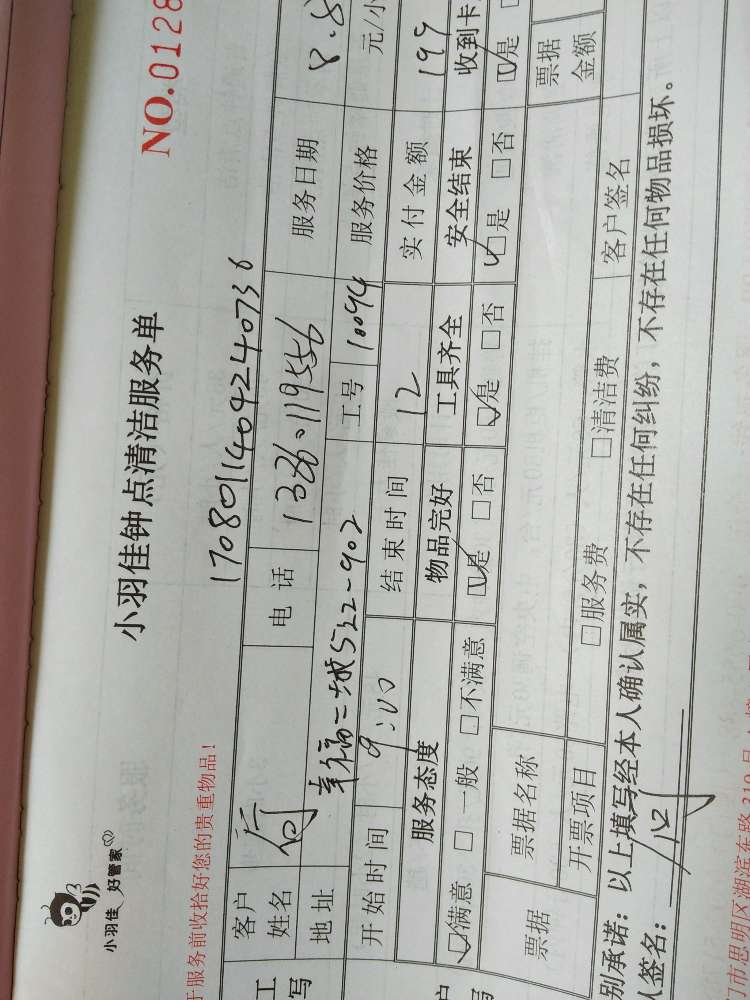 小羽佳 好管家
小羽佳钟点清洁服务单
NO.0128
于服务前收拾好您的贵重物品!
1708011404240736
客户姓名 电话 服务日期 8.
地址 幸福二城5522-902 工号 10094 服务价格 元/小
开始时间 9:00 结束时间 12 实付金额 199
服务态度 物品完好 工具齐全 安全结束 收到卡
☑满意 □一般 □不满意 ☑是 □否 ☑是 □否 ☑是 □否 ☑是
票据 票据名称 票据金额
开票项目 □服务费 □清洁费 客户签名
别承诺:以上填写经本人确认属实,不存在任何纠纷,不存在任何物品损坏。
(签名:
门市思明区湖滨东路319号